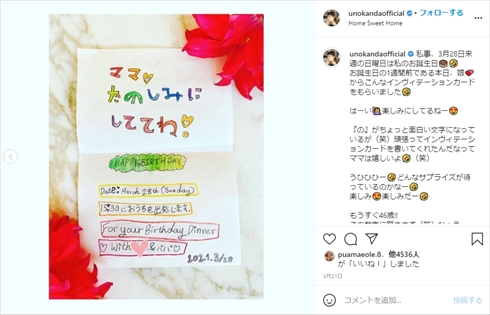 ママ♡
たのしみに
しててね!
HAPPY BIRTHDAY
Date: March 28th (Sunday)
15:30におうちを出発します。
For your Birthday Dinner
♡ With ♡ & パパ♡
2021.3/28
unokandaofficial • フォローする
Home Sweet Home
unokandaofficial 私事、3月28日来
週の日曜日は私のお誕生日🎂🤪
お誕生日の1週間前である本日、娘💝
からこんなインヴィテーションカード
をもらいました🤪
はーい🙋楽しみにしてるねー😍
『の』がちょっと面白い文字になって
いるが（笑）頑張ってインヴィテーシ
ョンカードを書いてくれたんだなって
ママは嬉しいよ🤪（笑）
うひひひー🤪どんなサプライズが待
っているのかなー🤪
楽しみだなー😍楽しみだー🤪
もうすぐ46歳!!
puamaeole.8、他4536人
が「いいね！」しました
3月21日
コメントを追加...
投稿する